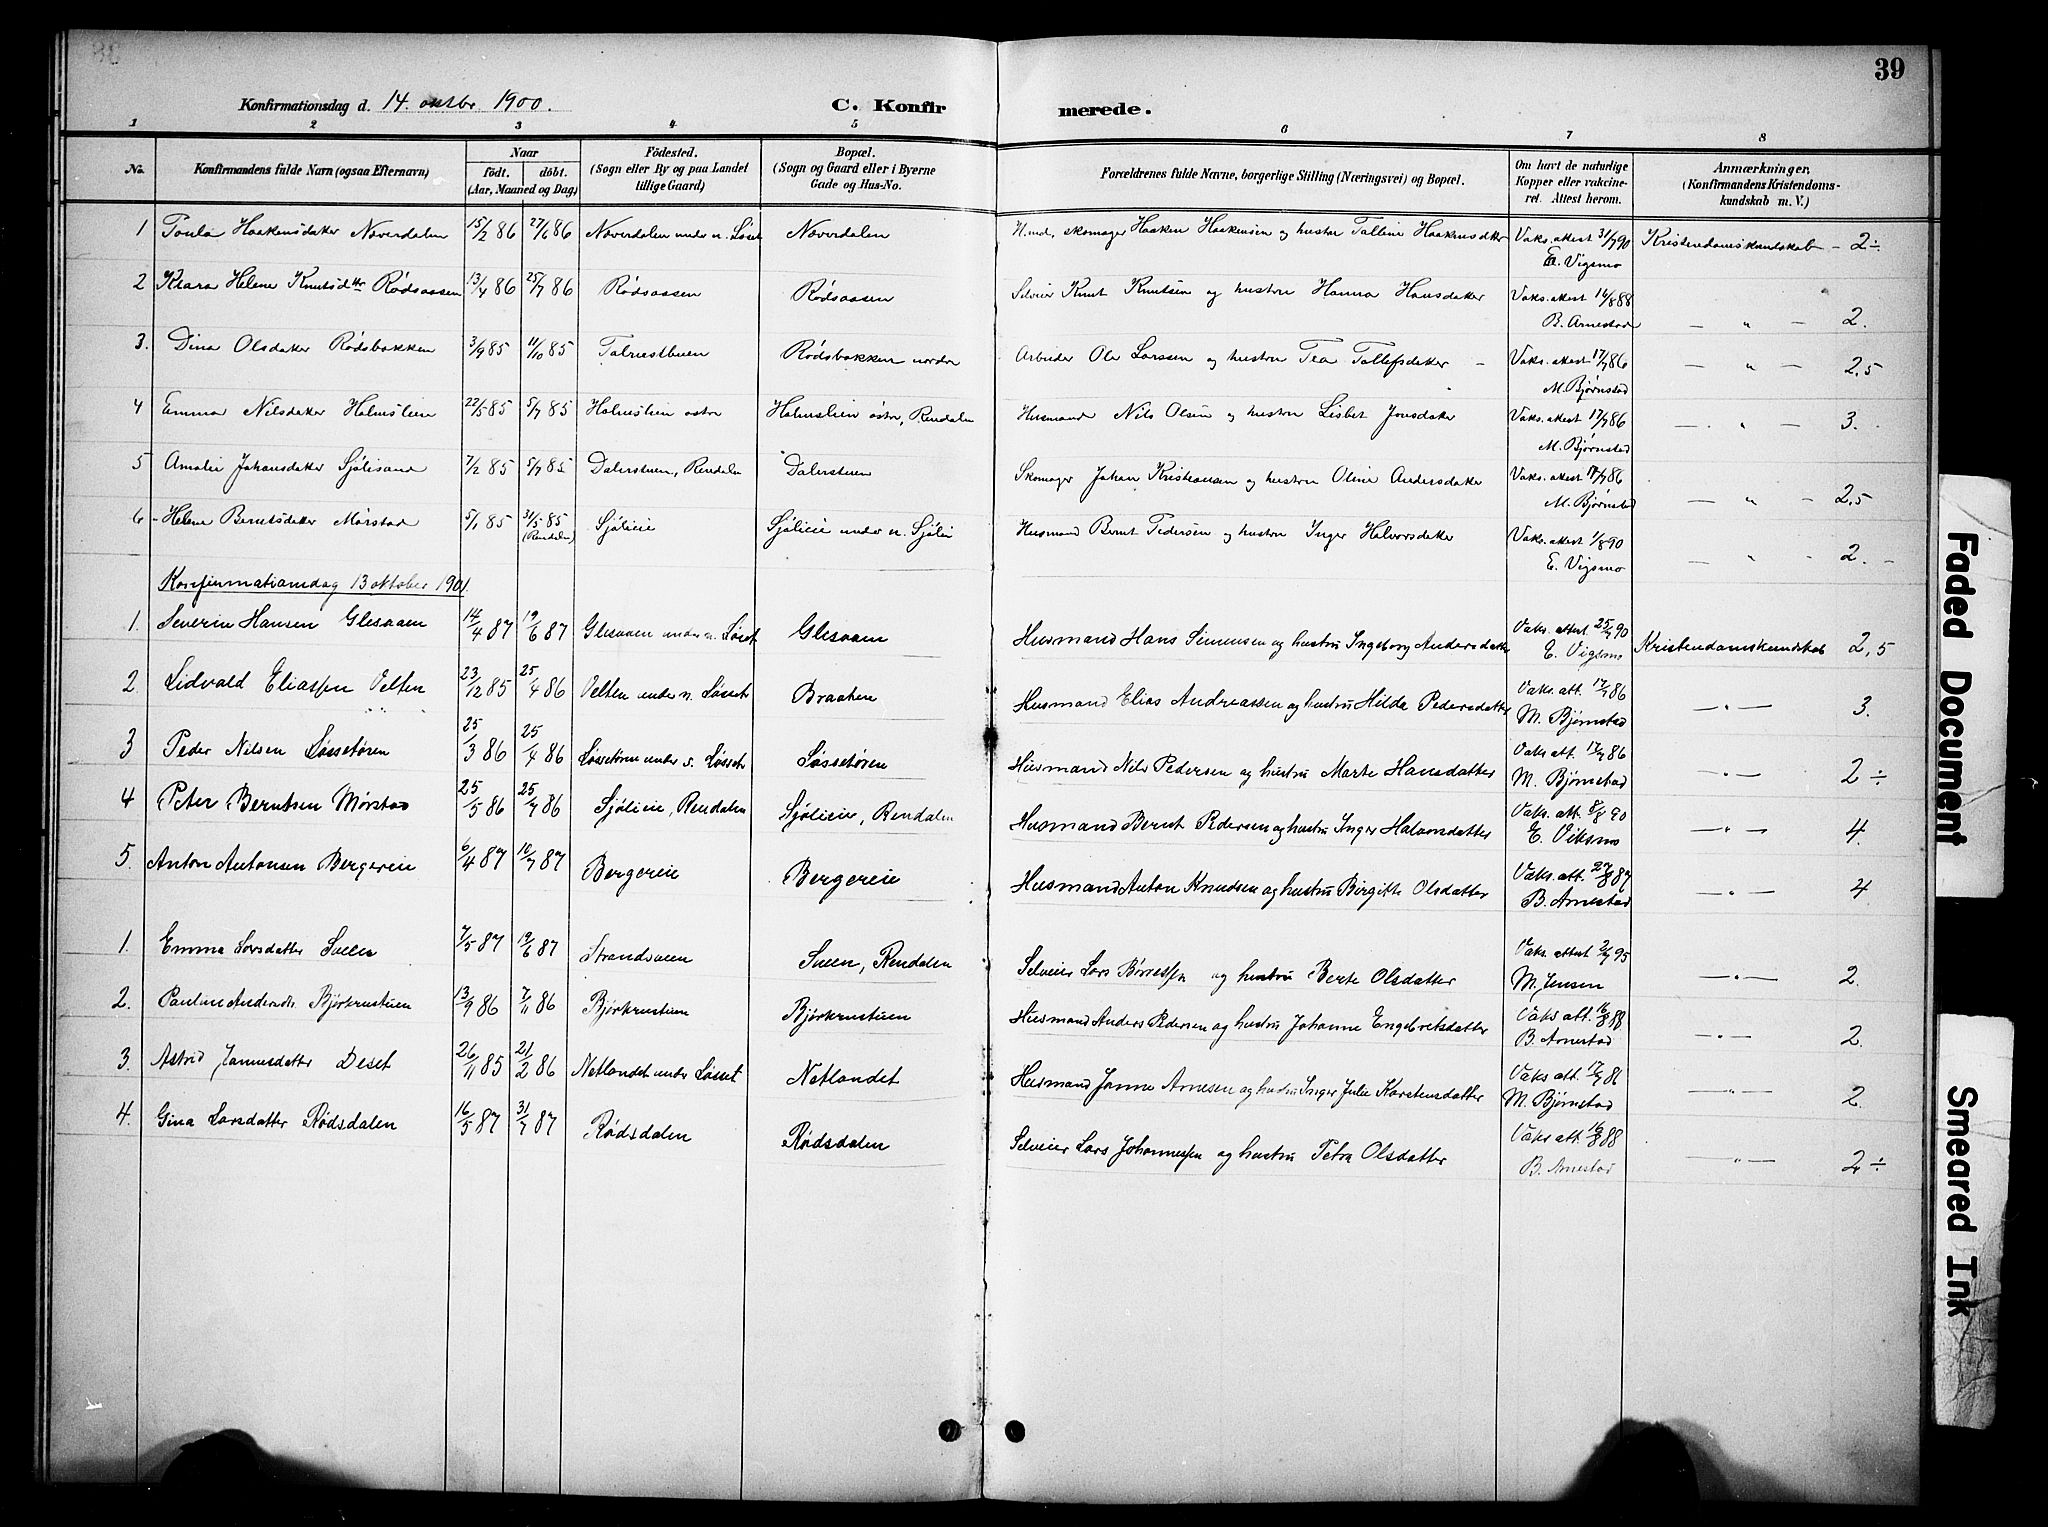 39
Konfirmationsdag d. 14. oktbr 1900. C. Konfirmerede.
1 2 3 4 5 6 7 8
No. Konfirmandens fulde Navn (ogsaa Efternavn) Naar födt. döbt. (Aar, Maaned og Dag) Födested. (Sogn eller By og paa Landet tillige Gaard) Bopæl. (Sogn og Gaard eller i Byerne Gade og Hus-No. Forældrenes fulde Navne, borgerlige Stilling (Næringsvei) og Bopæl. Om havt de naturlige Kopper eller vakcineret. Attest herom. Anmærkninger. (Konfirmandens Kristendomskundskab m. V.)
1 Haakensdatter Nøverdalen 15/2 86 27/6 86 Nøverdalen under n. Løset Nøverdalen H.md, skomager Haaken Haakensen og hustru Talline Haakensdtr Vaks. attest 31/7 90 E. Vigsmo Kristendomskundskab - 2÷
2 Klara Helene Knutsdtr Rødsaasen 13/4 86 25/7 86 Rødsaasen Rødsaasen Selveier Knut Knutsen og hustru Hanna Hansdatter Vaks. attest 16/8 88 B. Arnestad — " — 2.
3. Dina Olsdatter Rødsbakken 3/9 85 11/10 85 Rødsbakken nordre Arbeider Ole Larssen og hustru Tea Tollefsdatter - Vaks. attest 17/7 86 M. Bjørnstad — " — 2,5
4 Emma Nilsdatter Holmstien 22/5 85 5/7 85 Holmstien østre Holmstien østre, Rendalen Husmand Nils Olsen og hustru Lisbet Jonsdatter Vaks. attest 17/7 86 M. Bjørnstad — " — 3.
5 Amalie Johansdatter Sjölisand 7/2 85 5/7 85 Dalerstuen, Rendalen Dalerstuen Skomager Johan Kristiansen og hustru Oline Andersdatter Vaks. attest 17/7 86 M. Bjørnstad — " — 2,5
6 - Helene Berntsdatter Mørstad 5/1 85 31/5 85 (Rendalen) Sjölieie Sjölieie under n. Sjöli Husmand Bernt Pedersen og hustru Inger Halvorsdatter Vaks. attest 1/8 90 E. Vigsmo — " — 2. -
Konfirmationsdag 13 oktober 1901.
1. Severin Hansen Glesaaen 14/4 87 19/6 87 Glesaaen under n. Løset Glesaaen Husmand Hans Simensen og hustru Ingeborg Andersdatter Vaks. attest 25/7 90 E. Vigsmo Kristendomskundskab 2,5
2. Lidvald Eliassen Velten 23/12 85 25/4 86 Velten under n. Løsset Braaten Husmand Elias Andreassen og hustru Hilda Pedersdatter Vaks. att. 17/7 86 M. Bjørnstad — " — 3.
3 Peder Nilsen Løssetøren 25/3 86 25/4 86 Løssetøren under s. Løsset Løssetøren Husmand Nils Pedersen og hustru Marte Hansdatter Vaks. att. 17/7 86 M. Bjørnstad — " — 2÷
4 Peter Berntsen Mørstad 25/5 86 25/7 86 Sjöliein, Rendalen Sjölieie, Rendalen Husmand Bernt Pedersen og hustru Inger Halvorsdatter Vaks. att. 8/8 90 E. Viksmo — " — 4.
5. Anton Antonsen Bergereie 6/4 87 10/7 87 Bergereie Bergereie Husmand Anton Knudsen og hustru Birgitte Olsdatter Vaks. att. 27/8 87 B. Arnestad — " — 4
1. Emma Larsdatter Sveen 7/5 87 19/6 87 Strandsveen Sveen, Rendalen Selveier Lars og hustru Berte Olsdatter Vaks. attest 2/7 95 M. Jensen — " — 2.
2. Pauline Andersdtr. Bjørkrustuen 13/9 86 7/11 86 Bjørkrustuen Bjørkrustuen Husmand Anders Pedersen og hustru Johanne Engebretsdatter Vaks att. 16/8 88 B. Arnestad — " — 2.
3. Astrid Jannesdatter Deset 26/11 85 21/2 86 Netlandet under Løsset Netlandet Husmand Janne Arnesen og hustru Inger Julie Karstensdatter Vaks att. 17/7 86 M. Bjørnstad — " — 2.
4. Gina Larsdatter Rødsdalen 16/5 87 31/7 87 Rødsdalen Rødsdalen Selveier Lars Johannessen og hustru Petra Olsdatter Vaks. att. 16/8 88 B. Arnestad — " — 2÷
Faded Document
Smeared Ink